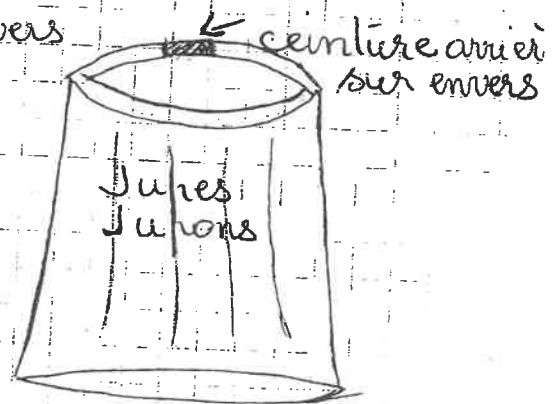 vers
ceinture arriè
sur envers
Jupes
Jupons